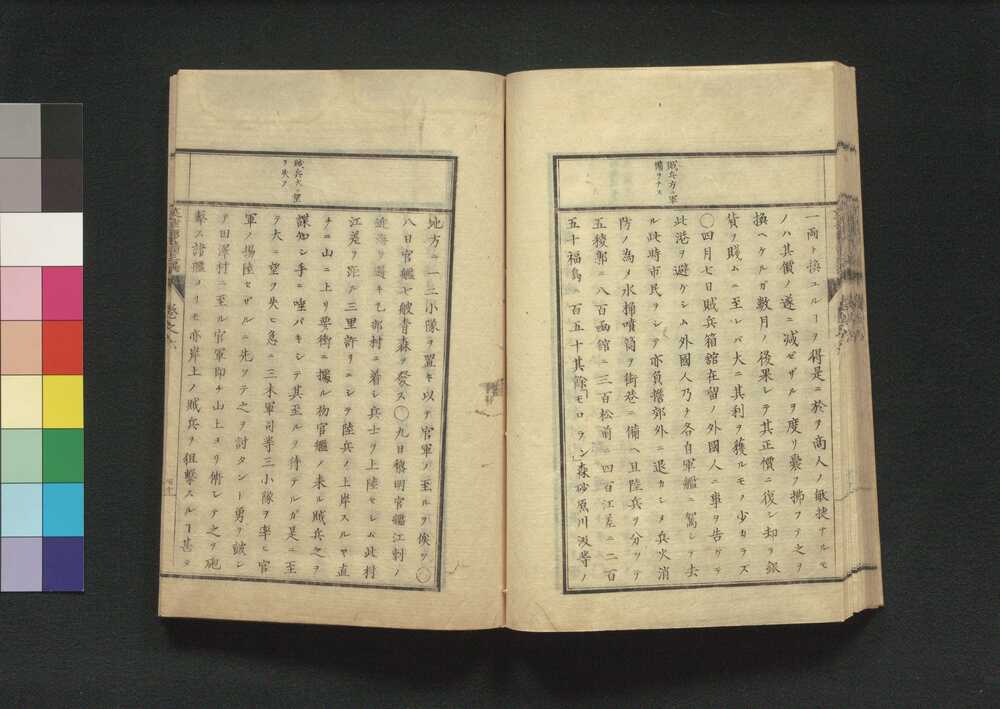 賊兵方ニ軍
備ヲナス
一両ト換ユルーヲ得是ニ於ヲ商人ノ敏捷ナルモ
ノハ其價ノ遂ニ减ゼザルヲ度リ嚢ヲ拂フテ之ヲ
換ヘケルガ数月ノ後果シテ其正價ニ復シ却ヲ銀
貨ヲ賤ムニ至レバ大ニ其利ヲ獲ルモノ少カラズ
〇四月七日賊兵箱舘在留ノ外國人ニ事ヲ告ゲテ
此港ヲ避ケシム外國人乃チ各自軍艦ニ駕シテ去
ル此時市民ヲシテ亦負擔郊外ニ退カシメ兵火消
防ノ為メ水掃噴筒ヲ街巷ニ備ヘ且陸兵ヲ分ッテ
五稜郭ニ八百函館ニ三百松前ニ四百江差ニ二百
五十福島ニ百五十其餘モロラン森砂原川汲等ノ
賊兵大ニ望
ヲ失フ
地方ニ一二小隊ヲ置キ以テ官軍ノ至ルヲ俟ツ〇
八日官艦七艘青森ヲ發ス〇九日黎明官艦江刺ノ
近海ヲ過キ乙部村ニ着シ兵士ヲ上陸セシム此村
江差ヲ距ル三里許リニシテ陸兵ノ上岸スルヤ直
チニ山ニ上リ要衝ニ據ル初官艦ノ来ル賊兵之ヲ
諜知シ手ニ唾バキシテ其至ルヲ待テルガ是ニ至
テ大ニ望ヲ失ヒ急ニ三木軍司半三小隊ヲ率ヒ官
軍ノ揚陸セザルニ先ッテ之ヲ討タントー勇ヲ皷シ
テ田澤村ニ至ル官軍即チ山上ヨリ術シテ之ヲ砲
撃ス諸艦ノリモ亦岸上ノ賊兵ヲ狙撃スルヿ甚ダ